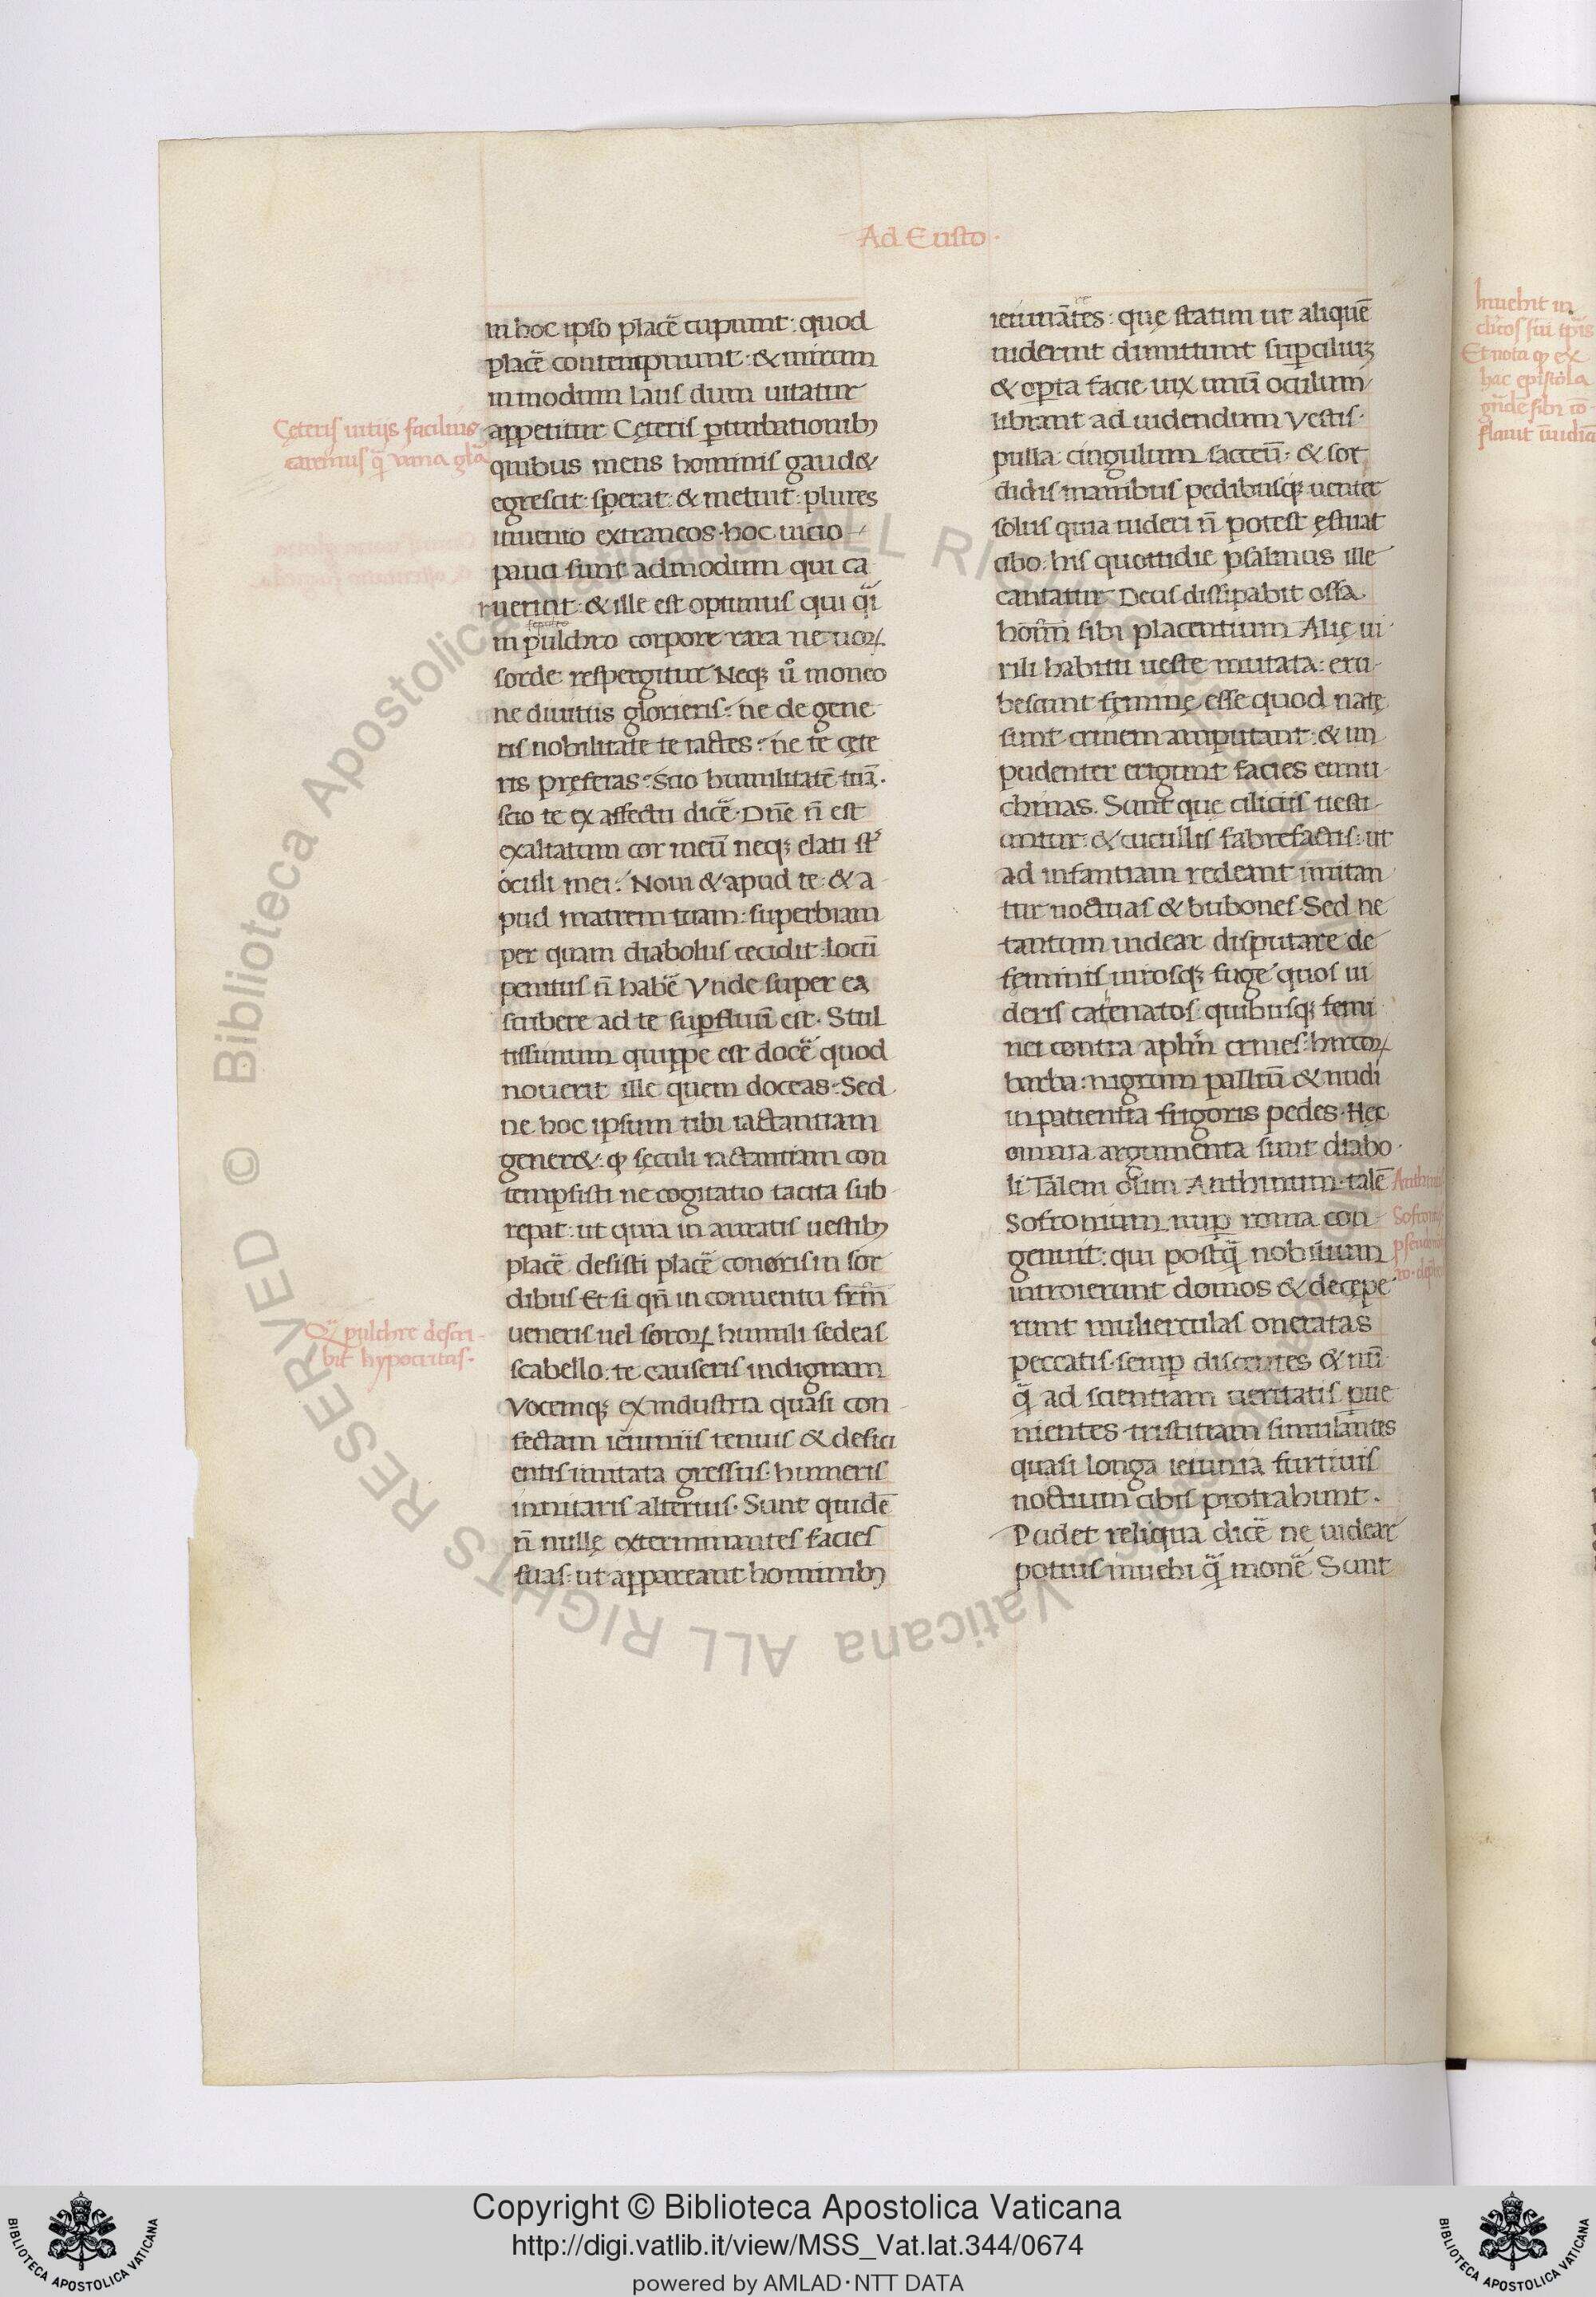 Ad Eusto·
in hoc ipso placē cupiunt: quod
placē contempnunt· & mirum
in modum laus dum uitatur
appetitur Cęteris ꝑturbationibꝫ
quibus mens hominis gaud&
egrescit: sperat: & metuit: plures
inuenio extraneos· hoc uicio
pauci sunt admodum qui ca
ruerint: & ille est optimus qui q̄i
in pulchro corpore rara neuoꝝ
sorde respergitur Neqꝫ ů moneo
ne diuitiis glorieris: ne de gene
ris nobilitate te iactes: ne te cęte
ris pręferas: Scio humilitatē tuā·
scio te ex affectu dicē· Dn̄e n̄ est
exaltatum cor meū neqꝫ elati st̄
oculi mei: Noui & apud te: & a
pud matrem tuam: superbiam
per quam diabolus cecidit: locū
penitus n̄ habē Vnde super ea
scribere ad te suꝑfluū est· Stul
tissimum quippe est docē quod
nouerit ille quem doceas: Sed
ne hoc ipsum tibi iactantiam
gener&: ꝙ sęculi iactantiam con
tempsisti ne cogitatio tacita sub
repat: ut quia in auratis uestibꝫ
placē desisti placē coneris in sor
dibus Et si qn̄ in conuentu fr̄m̄
ueneris uel sororꝝ humili sedeas
scabello: te causeris indignam
Vocemqꝫ ex industria quasi con
fectam ieiuniis tenuis & defici
entis imitata gressus· humeris
innitaris alterius· Sunt quidē
n̄ nullę exterminantes facies
suas: ut appareant hominibꝫ
ieiunātes: quę statim ut aliquē
uiderint dimittunt suꝑciliuꝫ
& oꝑta facie uix unū oculum
librant ad uidendum Vestis·
pulla: cingulum sacceū· & sor
didis manibus pedibusqꝫ uenter
solus quia uideri n̄ potest ęstuat
cibo: his quottidie psalmus ille
cantatur Deus dissipabit ossa
hoīm̄ sibi placentium Alię ui
rili habitu ueste mutata: eru
bescunt fęminę esse quod natę
sunt crinem amputant: & im
pudenter erigunt facies eunu
chinas. Sunt que ciliciis uesti
untur: & cucullis fabrefactis: ut
ad infantiam redeant imitan
tur noctuas & bubones· Sed ne
tantum uidear disputare de
fęminis uirosqꝫ fuge quos ui
deris catenatos: quibusqꝫ femi
nei contra apl̄m̄ crines: hircorꝝ
barba: nigrum palliū & nudi
in patientia frigoris pedes· Hęc
omnia argumenta sunt diabo
li Talem olim Anthimum· talē
Sofronium nuꝑ roma con
gemuit: qui postq̄ nobilium
introierunt domos & decępe
runt mulierculas oneratas
peccatis· semꝑ discentes & nū
q̄ ad scientiam ueritatis ꝑue
nientes tristitiam simulantes
quasi longa ieiunia furtiuis
noctium cibis protrahunt·
Pudet reliqua dicē ne uidear
potius inuehi q̄ monē Sunt
Cęteris uitijs facilius
caremus q̄ uana glā
pulchre descri
bit hypocritas·
Inuehit in
Et nota ꝙ ex
hac epistola
flauit īuidiā
Copyright © Biblioteca Apostolica Vaticana
http://digi.vatlib.it/view/MSS_Vat.lat.344/0674
powered by AMLAD·NTT DATA
BIBLIOTECA APOSTOLICA VATICANA
BIBLIOTECA APOSTOLICA VATICANA
© Biblioteca Apostolica Vaticana ALL RIGHTS RESERVED